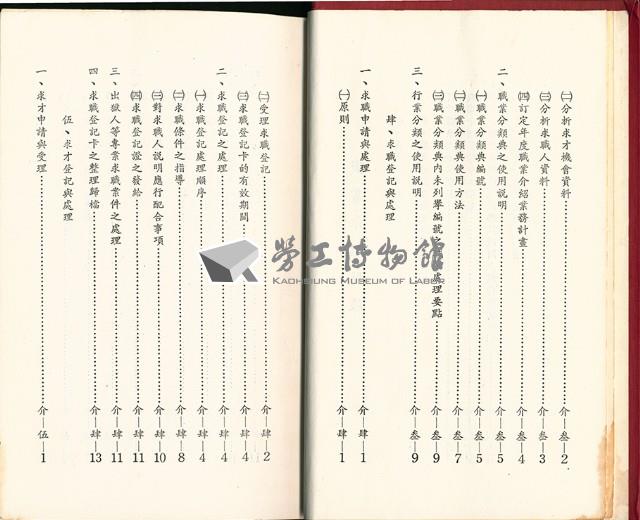 ㈡分析求才機會資料……介—叁—2
㈢分析求職人資料……介—叁—3
㈣訂定年度職業介紹業務計畫……介—叁—4
二、職業分類典之使用說明……介—叁—5
㈠職業分類典編號……介—叁—5
㈡職業分類典使用方法……介—叁—7
㈢職業分類典內未列舉編號 處理要點……介—叁—9
三、行業分類之使用說明……介—叁—9
肆、求職登記與處理
一、求職申請與處理……介—肆—1
㈠原則……介—肆—1
㈡受理求職登記……介—肆—2
㈢求職登記卡的有效期間……介—肆—4
二、求職登記之處理……介—肆—4
㈠求職登記處理順序……介—肆—4
㈡求職條件之指導……介—肆—8
㈢對求職人說明應行配合事項……介—肆—10
㈣求職登記證之發給……介—肆—11
三、出獄人等專業求職案件之處理……介—肆—11
四、求職登記卡之整理歸檔……介—肆—13
伍、求才登記與處理
一、求才申請與受理……介—伍—1
勞工博物館
KAOHSIUNG MUSEUM OF LABOR